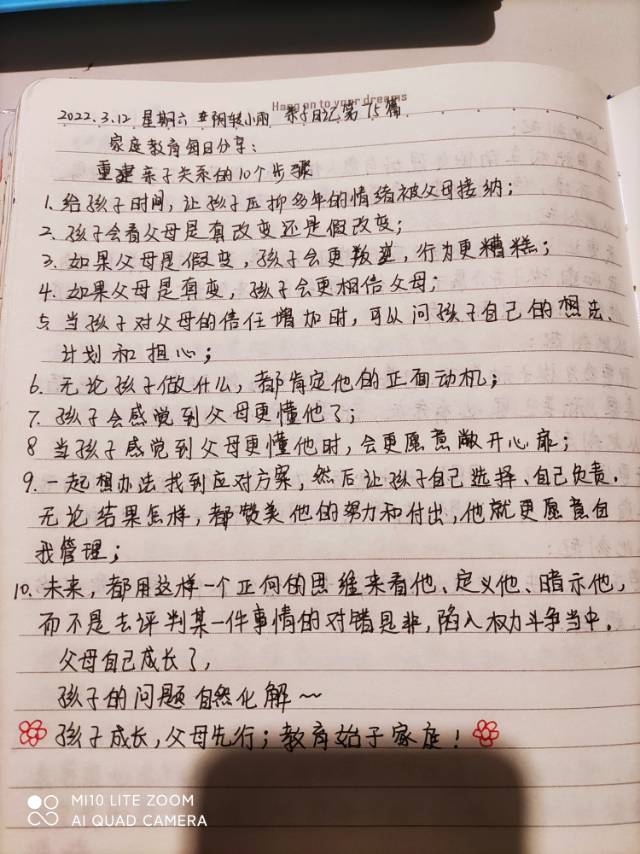 Hang on to your dreams
2022.3.12 星期六 阴转小雨 亲子日记第75篇
家庭教育每日分享:
重建亲子关系的10个步骤
1. 给孩子时间,让孩子压抑多年的情绪被父母接纳;
2. 孩子会看父母是真改变还是假改变;
3. 如果父母是假变,孩子会更叛逆,行为更糟糕;
4. 如果父母是真变,孩子会更相信父母;
5. 当孩子对父母的信任增加时,可以问孩子自己的想法、
计划和担心;
6. 无论孩子做什么,都肯定他的正面动机;
7. 孩子会感觉到父母更懂他了;
8 当孩子感觉到父母更懂他时,会更愿意敞开心扉;
9. 一起想办法找到应对方案,然后让孩子自己选择、自己负责,
无论结果怎样,都赞美他的努力和付出,他就更愿意自
我管理;
10. 未来,都用这样一个正向的思维来看他、定义他、暗示他,
而不是去评判某一件事情的对错是非,陷入权力斗争当中。
父母自己成长了,
孩子的问题自然化解~~
孩子成长,父母先行;教育始于家庭!
MI 10 LITE ZOOM
AI QUAD CAMERA